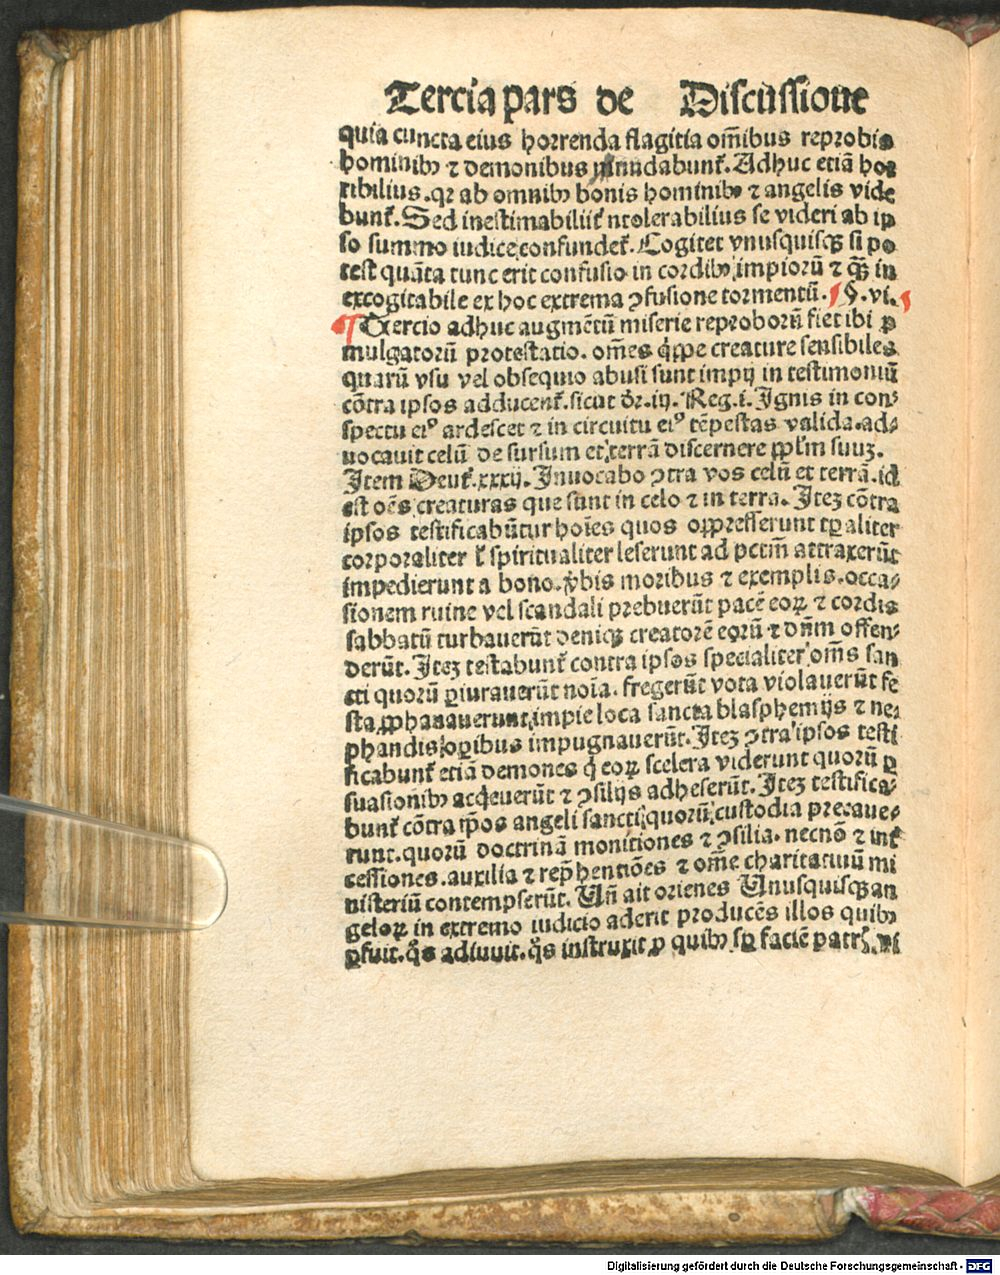 Tercia pars de Discussione
quia cuncta eius horrenda flagitia om̄ibus reprobis
hominibꝫ ⁊ demonibus nudabunt̃. Adhuc etiā hor
ribilius. qꝛ ab omnibꝫ bonis hominibꝫ ⁊ angelis vide
bunt̃. Sed inestimabilit̃ ntolerabilius se videri ab ip
so summo iudice confundet̃. Cogitet vnusquisqꝫ si po
test quāta tunc erit confusio in cordibꝫ impiorū ⁊ qꝫ̄ in
excogitabile ex hoc extrema ꝯfusione tormentū. §. vi.
¶ Tercio adhuc augmētū miserie reproborū fiet ibi ꝓ
mulgatorū protestatio. om̄es q̇ꝑpe creature sensibiles
quarū vsu vel obsequio abusi sunt impij in testimoniū
cōtra ipsos adducent̃. sicut dr̄. iij. Reg. i. Ignis in con⸗
spectu eiꝰ ardescet ⁊ in circuitu eiꝰ tēpestas valida. ad⸗
uocauit celū de sursum et terrā discernere ppl̄m suuꝫ.
Item Deut̃. xxxij. Inuocabo ꝯtra vos celū et terrā. id
est oēs creaturas que sunt in celo ⁊ in terra. Iteꝫ cōtra
ipsos testificabūtur hoīes quos oppresserunt tꝑaliter
corporaliter ł spiritualiter leserunt ad pctm̄ attraxerūt
impedierunt a bono. v̇bis moribus ⁊ exemplis. occa⸗
sionem ruine vel scandali prebuerūt pacē eoꝝ ⁊ cordis
sabbatū turbauerūt deniqꝫ creatorē eorū ⁊ dn̄m offen⸗
derūt. Iteꝫ testabunt̃ contra ipsos specialiter om̄s san
cti quorū ꝑiurauerūt noīa. fregerūt vota violauerūt fe
sta ꝓphanauerunt impie loca sancta blasphemijs ⁊ ne⸗
phandis oꝑibus impugnauerūt. Iteꝫ ꝯtra ipsos testi
ficabunt̃ etiā demones q̇ eoꝝ scelera viderunt quorū ꝑ
suasionibꝫ acq̇euerūt ⁊ ꝯsilijs adheserūt. Iteꝫ testifica⸗
bunt̃ cōtra ip̄os angeli sancti quorū custodia precaue⸗
runt. quorū doctrinā monitiones ⁊ ꝯsilia. necnō ⁊ int̃
cessiones. auxilia ⁊ rep̄hentiōes ⁊ om̄e charitatiuū mi
nisteriū contempserūt. Un̄ ait orienes Unusquisqꝫ an
geloꝝ in extremo iudicio aderit producēs illos quibꝫ
ꝓfuit. q̊s adiuuit. q̊s instruxit ꝓ quibꝫ sꝑ faciē patr̃. vi
Digitalisierung gefördert durch die Deutsche Forschungsgemeinschaft - DFG